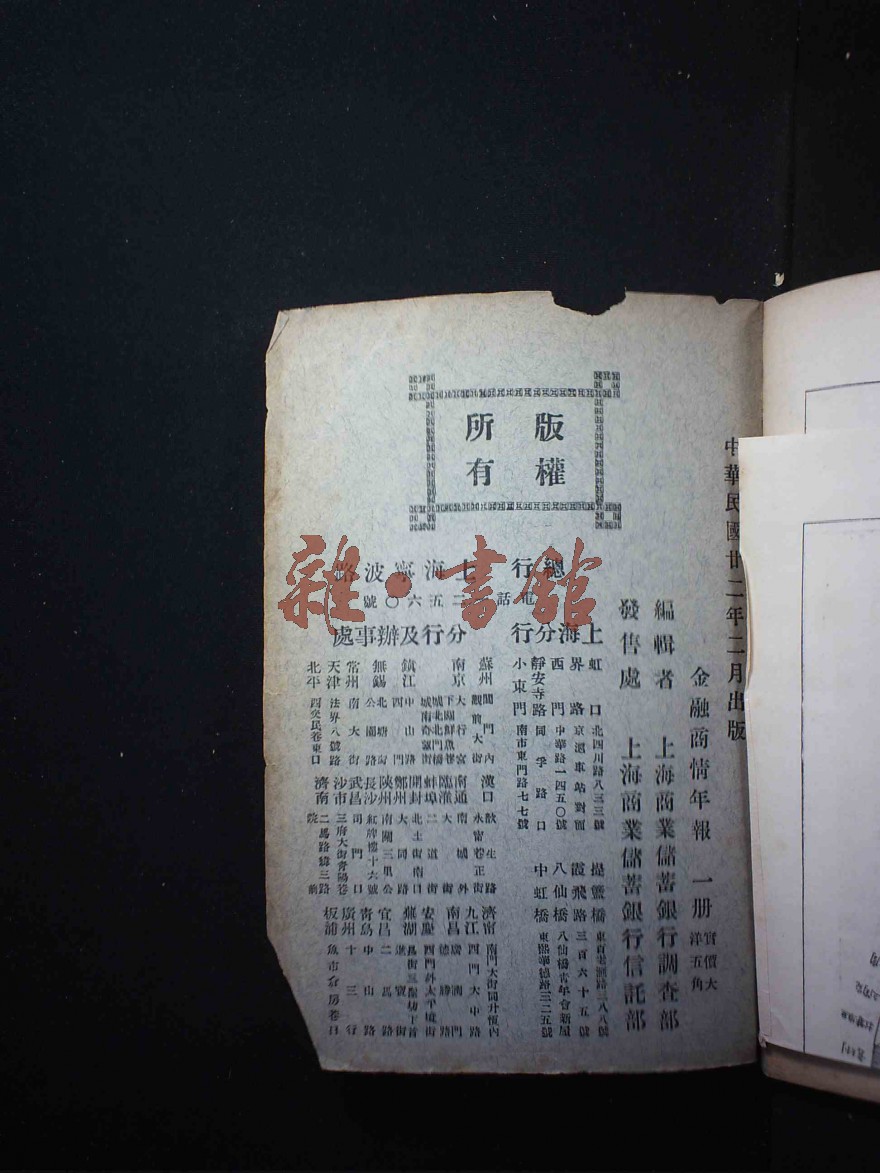 中華民國廿二年二月出版
金融商情年報 一册 實價大洋五角
編輯者 上海商業儲蓄銀行調查部
發售處 上海商業儲蓄銀行信託部
版權
所有
總行 上海寧波路
電話 一二五六〇號
上海分行
虹口 北四川路八三三號
界路 京滬車站對面
西門 中華路一四五〇號
靜安寺路 同孚路口
小東門 南市東門路七七號
提籃橋
霞飛路 三百六十五號
八仙橋 八仙橋青年會新屋
中虹橋 東熙華德路三二五號
分行及辦事處
蘇州 閶門內 觀前大街
南京 大行宮
鎮江 中山路 西門
無錫 北塘街 公園路
常州 南大街
天津 法界八號路
北平 西交民巷東口
漢口 歆生路 永甯巷正街
南通 南城外
臨淮 大街
蚌埠 二道街
開封 北土街南口
鄭州 大同路
陝州 南關三里公
長沙 紅牌樓十六號
武昌 司門口
沙市 三府大街青陽巷
濟南 二馬路緯三路
濟南 南門大街同升恆內
九江 西門大中路
南昌 廣潤門
安慶 西門外太平城街
蕪湖
宜昌 二馬路
青島 中山路
廣州 十三行
板浦 魚市倉房巷口
雜·書館